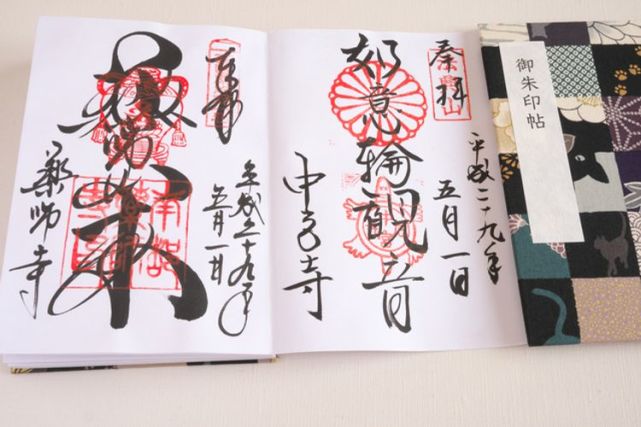 御朱印帖
平成二十九年
奉拝
五月一日
如意輪観音
中宮寺
奉拝
平成二十九年
五月一日
薬師如来
薬師寺